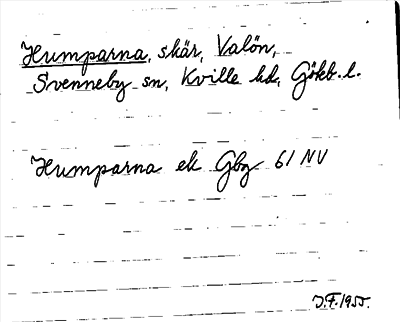 Humparna, skär, Valön,
Svenneby sn, Kville hd, Gökb. l.
Humparna ek Gbg 61 NV
J.F. 1955.